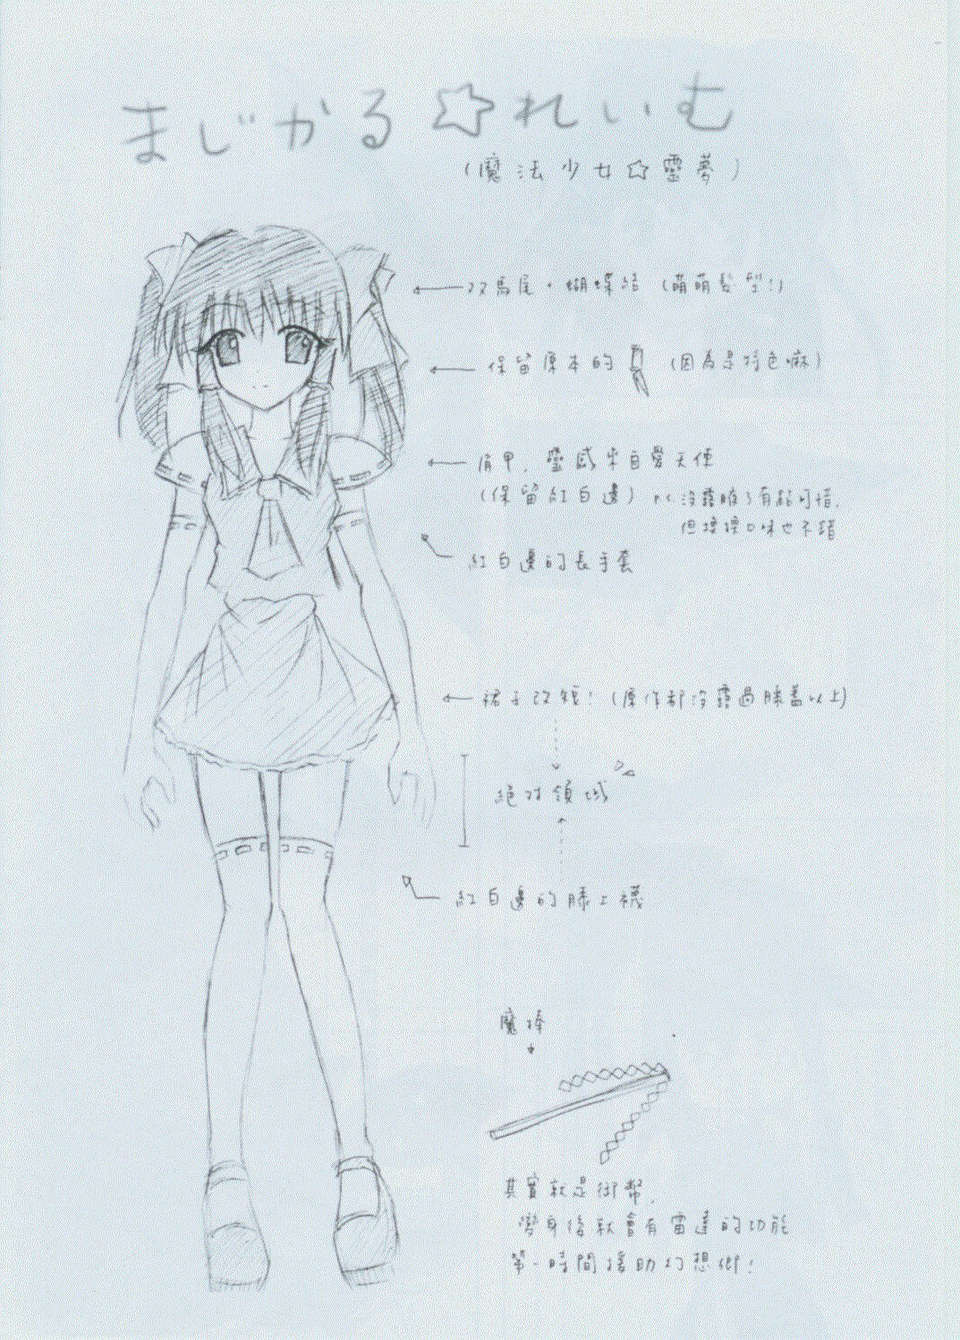 まじかる☆れいむ
(魔法少女☆靈夢)
双馬尾+蝴蝶結 (萌萌髮型!)
保留原本的 (因為是特色嘛)
肩甲,靈感來自愛天使
(保留紅白邊) 沒露腋下有點可惜,
但換換口味也不錯
紅白邊的長手套
裙子改短! (原作都沒露過膝蓋以上)
絕對領域
紅白邊的膝上襪
魔棒
其實就是御幣,
變身後就會有雷達的功能
第一時間援助幻想鄉!